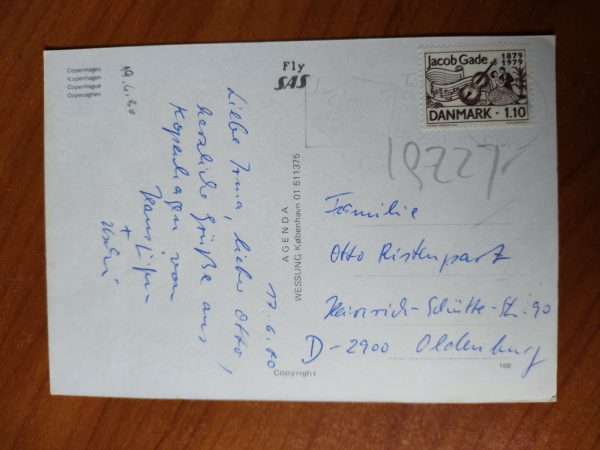 Copenhagen
Kopenhagen
Copenhague
Copenaghen
19.6.80
Fly
SAS
Jacob Gade 1879 1979
DANMARK · 1.10
17.6.80
Liebe Irma, lieber Otto,
herzliche Grüße aus
Kopenhagen von
+
AGENDA
WESSUNG København 01 511375
Familie
Otto Ristenpart
Heinrich-Schütte-Str. 90
D-2900 Oldenburg
Copyright